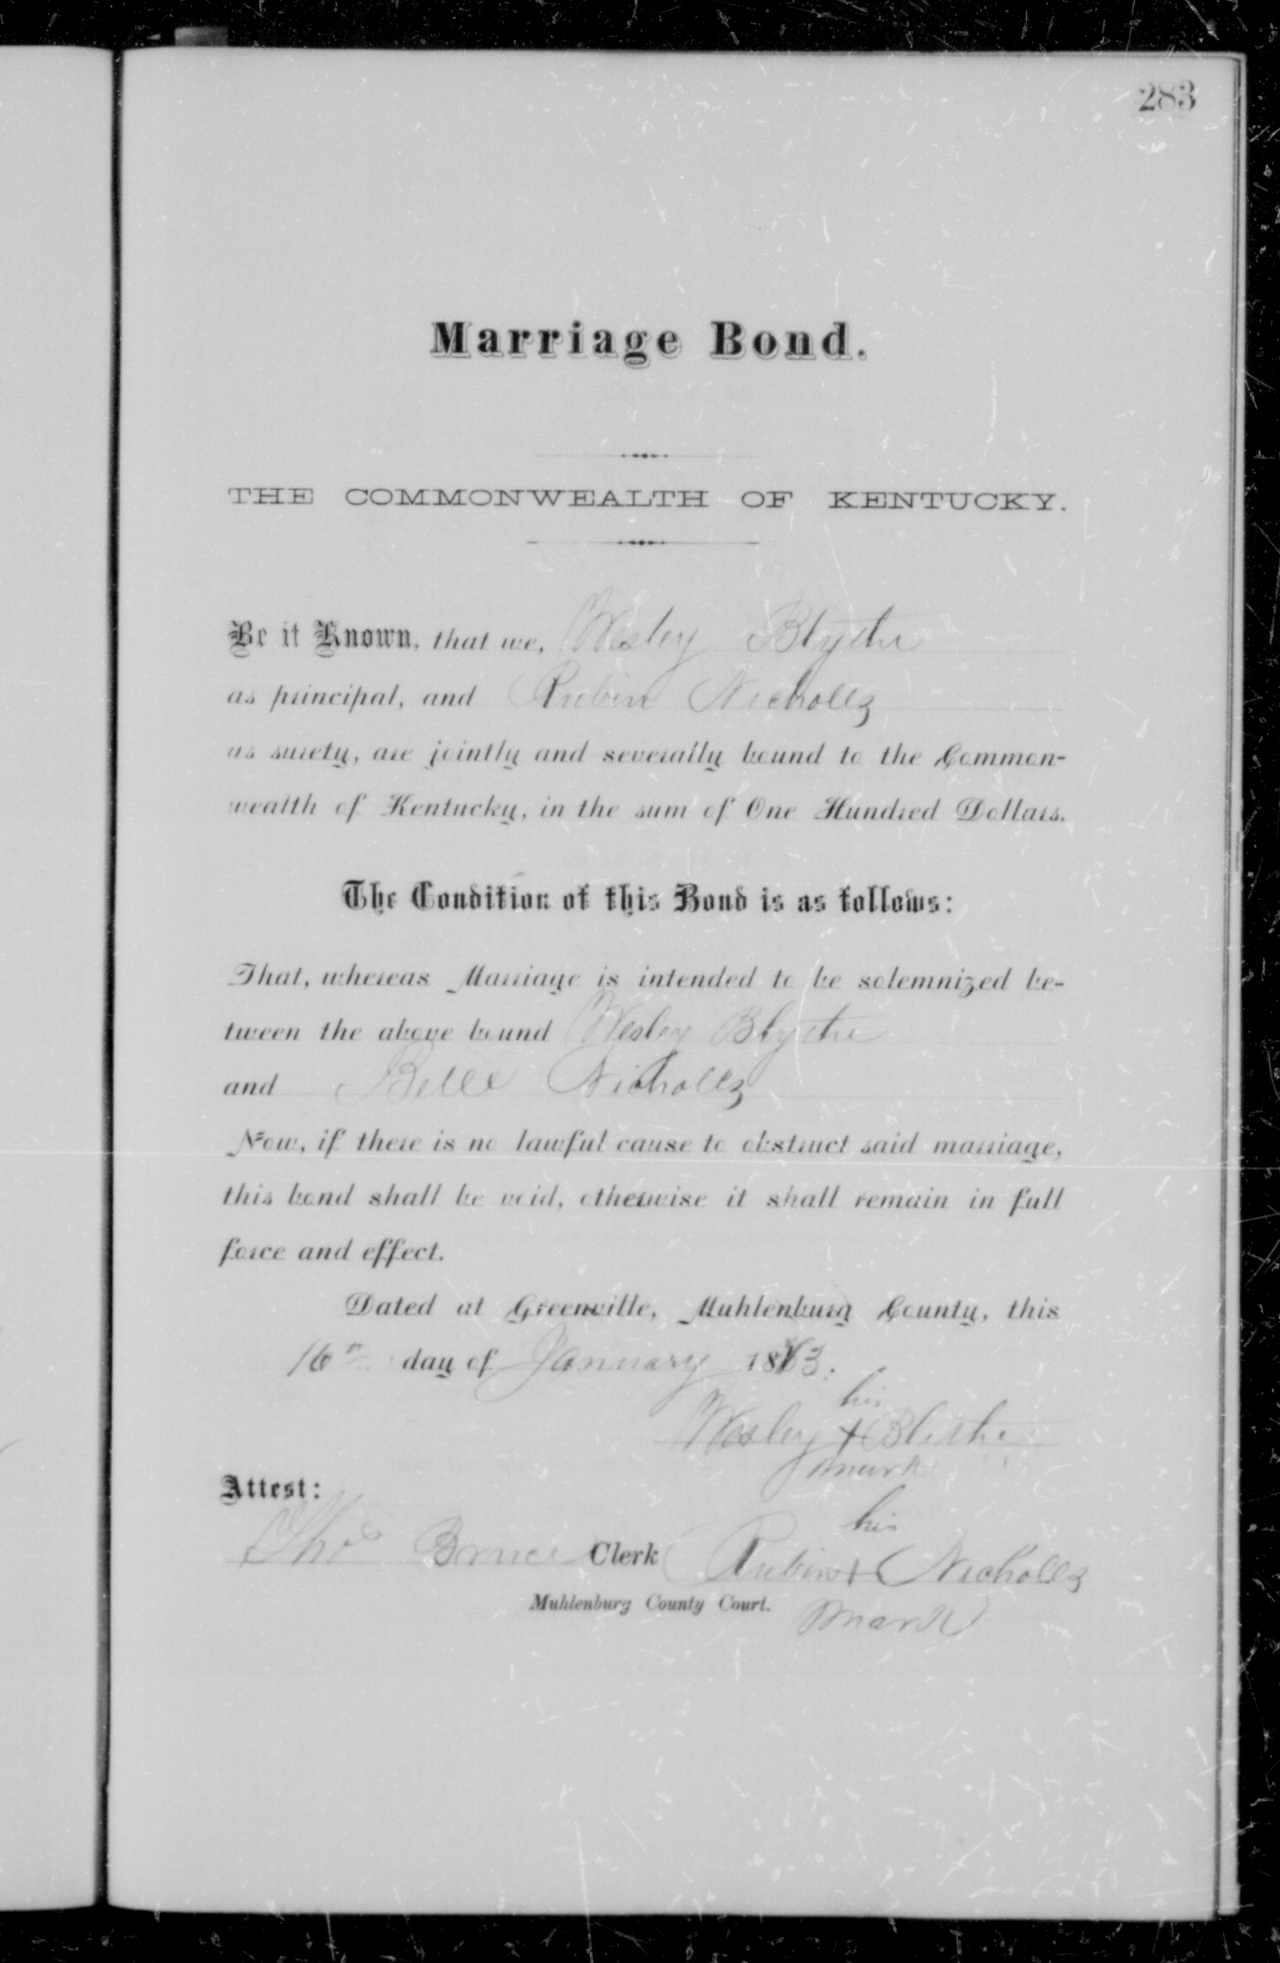 283
Marriage Bond.
THE COMMONWEALTH OF KENTUCKY.
Be it Known, that we, Wesley Blythe
as principal, and Rubin Nicholls
as surety, are jointly and severally bound to the Common-
wealth of Kentucky, in the sum of One Hundred Dollars.
The Condition of this Bond is as follows:
That, whereas Marriage is intended to be solemnized be-
tween the above bound Wesley Blythe
and Belle Nicholls
Now, if there is no lawful cause to obstruct said marriage,
this bond shall be void, otherwise it shall remain in full
force and effect.
Dated at Greenville, Muhlenburg County, this
16th day of January
his
Wesley + Blithe
mark
Attest:
his
Thos Bruce Clerk Rubin + Nicholls
Muhlenburg County Court. mark